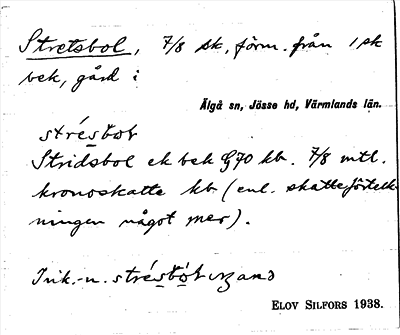 Stretsbol, 7/8 sk, förm. från 1 sk
bek, gård i
Älgå sn, Jösse hd, Värmlands län.
strésbot
Stridsbol ek bek 970 kb. 7/8 mtl.
kronoskatte kb (enl. skatteförteck-
ningen något mer).
Ink.-n. strésbót
ELOV SILFORS 1938.